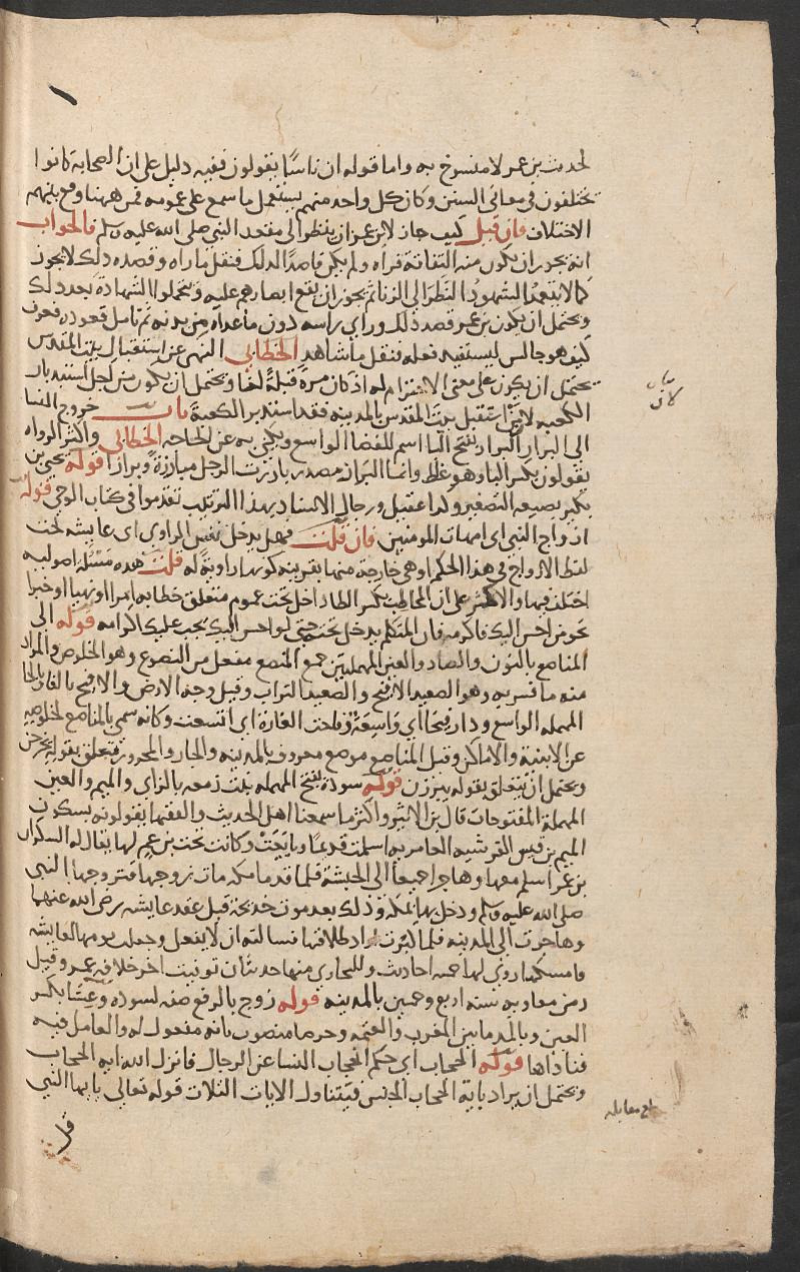 لحديث بن عمر لا منسوخ به واما قوله ان ناسًا يقولون ففيه دليل على ان الصحابة كانوا
يختلفون في معاني السنن وكان كل واحد منهم يستعمل ما سمع على عمومه فمن ههنا وقع بينهم
الاختلاف فان قيل كيف جاز لابن عمر ان ينظر الى مقعد النبي صلى الله عليه وسلم فالجواب
انه يجوز ان يكون منه التفاتة فراه ولم يكن قاصدًا لذلك فنقل ما راه وقصده ذلك لا يجوز
كما لا يتعمد الشهود النظر الى الزنا ثم يجوز ان يقع ابصارهم عليه ويتحملوا الشهادة بعد ذلك
ويحتمل ان يكون بن عمر قصد ذلك وراي راسه دون ما عداه من بدنه ثم تامل قعوده فعرف
كيف هو جالس ليستفيد فعله فنقل ما شاهد الخطابي النهي عن استقبال بيت المقدس
يحتمل ان يكون على معنى الاحترام له اذ كان مرة قبلةً لنا ويحتمل ان يكون من اجل استدبار
الكعبه لان من استقبل بيت المقدس بالمدينه فقد استدبر الكعبة باب خروج النسا
الى البراز البراز بفتح البا اسم للفضا الواسع ويكنى به عن الحاجه الخطابي واكثر الرواه
يقولون بكسر البا وهو غلط وانما البراز مصدر بارزت الرجل مبارزة وبرازا قوله يحيى بن
بكير بصيغه التصغير وكذا عقيل ورجال الاسناد بهذا الترتيب تقدموا في كتاب الوحي قوله
ازواج النبي اي امهات المومنين فان قلت فهل يدخل نفس الراوي اي عايشه تحت
لفظ الازواج في هذا الحكم او هي خارجة منها بقرينه كونها راوية له قلت هذه مسئله اصوليه
اختلف فيها والاكثر على ان المخاطِب بكسر الطا داخل تحت عموم متعلق خطابه امرا او نهيا او خبرا
نحو من احسن اليك فاكرمه فان المتكلم يدخل تحته حتى لو احسن اليك يجب عليك اكرامه قوله الى
المناصع بالنون والصاد والعين المهملتين جمع المنصع مفعل من النصوع وهو الخلوص والمراد
منه ما فسر به وهو الصعيد الافيح والصعيد التراب وقيل وجه الارض والافيح بالفا وبالحا
المهمله الواسع ودار فيحا اي واسعة وفاحت الغارة اي اتسعت وكانه سمي بالمناصع لخلوصه
عن الابنية والاماكن وقيل المناصع موضع معروف بالمدينه والجار والمجرور متعلق بقوله يخرجن
ويحتمل ان يتعلق بقوله يبرزن قوله سودة بفتح المهمله بنت زمعه بالزاي والميم والعين
المهملة المفتوحات قال بن الاثير واكثر ما سمعنا اهل الحديث والفقها يقولونه بسكون
الميم بن قيس القرشيه العامريه اسلمت قديمًا وبايعت وكانت تحت بن عم لها يقال له السكران
بن عمر اسلم معها وهاجرا جميعا الى الحبشة فلما قدما مكه مات زوجها فتزوجها النبي
صلى الله عليه وسلم ودخل بها بمكة وذلك بعد موت خديجة قبل عقد عايشه رضي الله عنهما
وهاجرت الى المدينه فلما كبرت اراد طلاقها فسالته ان لا يفعل وجعلت يومها لعايشه
فامسكها روي لها خمسه احاديث وللبخاري منها حديثان توفيت اخر خلافة عمر وقيل
زمن معاويه سنه اربع وخمسين بالمدينه قوله زوج بالرفع صفه لسوده وعشا بكسر
العين وبالمد ما بين المغرب والعتمه وحرصا منصوب بانه مفعول له والعامل فيه
فناداها قوله الحجاب اي حكم الحجاب النسا عن الرجال فانزل الله ايه الحجاب
ويحتمل ان يراد باية الحجاب الجنس فيتناول الايات الثلاث قوله تعالى يا ايها النبي
بلغ مقابله
قل